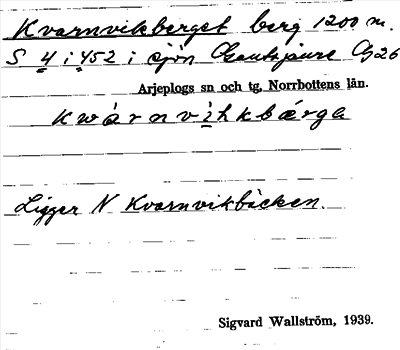 Kvarnvikberget berg 1200 m.
S 4 i 452 i sjön Og 26
Arjeplogs sn och tg, Norrbottens län.
kwárnvìhkbárga
Ligger N Kvarnvikbäcken.
Sigvard Wallström, 1939.